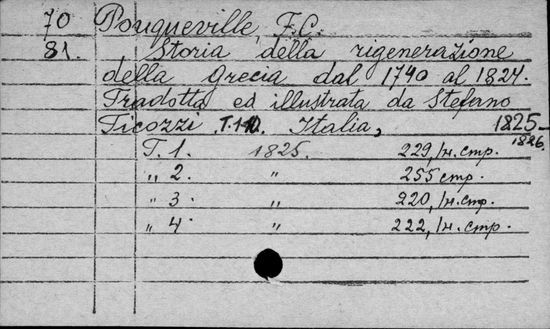 70 Pouqueville, F.C.
81. Storia della rigenerazione
della Grecia dal 1740 al 1824.
Tradotta ed illustrata da Stefano
Ticozzi. T. Italia, 1825-
1826.
T. 1. 1825. 229, /н. стр.
„ 2. „ 255 стр.
„ 3. „ 220, /н. стр.
„ 4. „ 222, /н. стр.